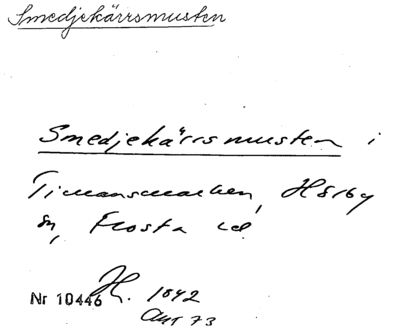 Smedjekärrsmusten
Smedjekärrsmusten i
Timansmarken, Hörby
sn, Frosta hd
Nr 10446 H. 1842
Akt 73